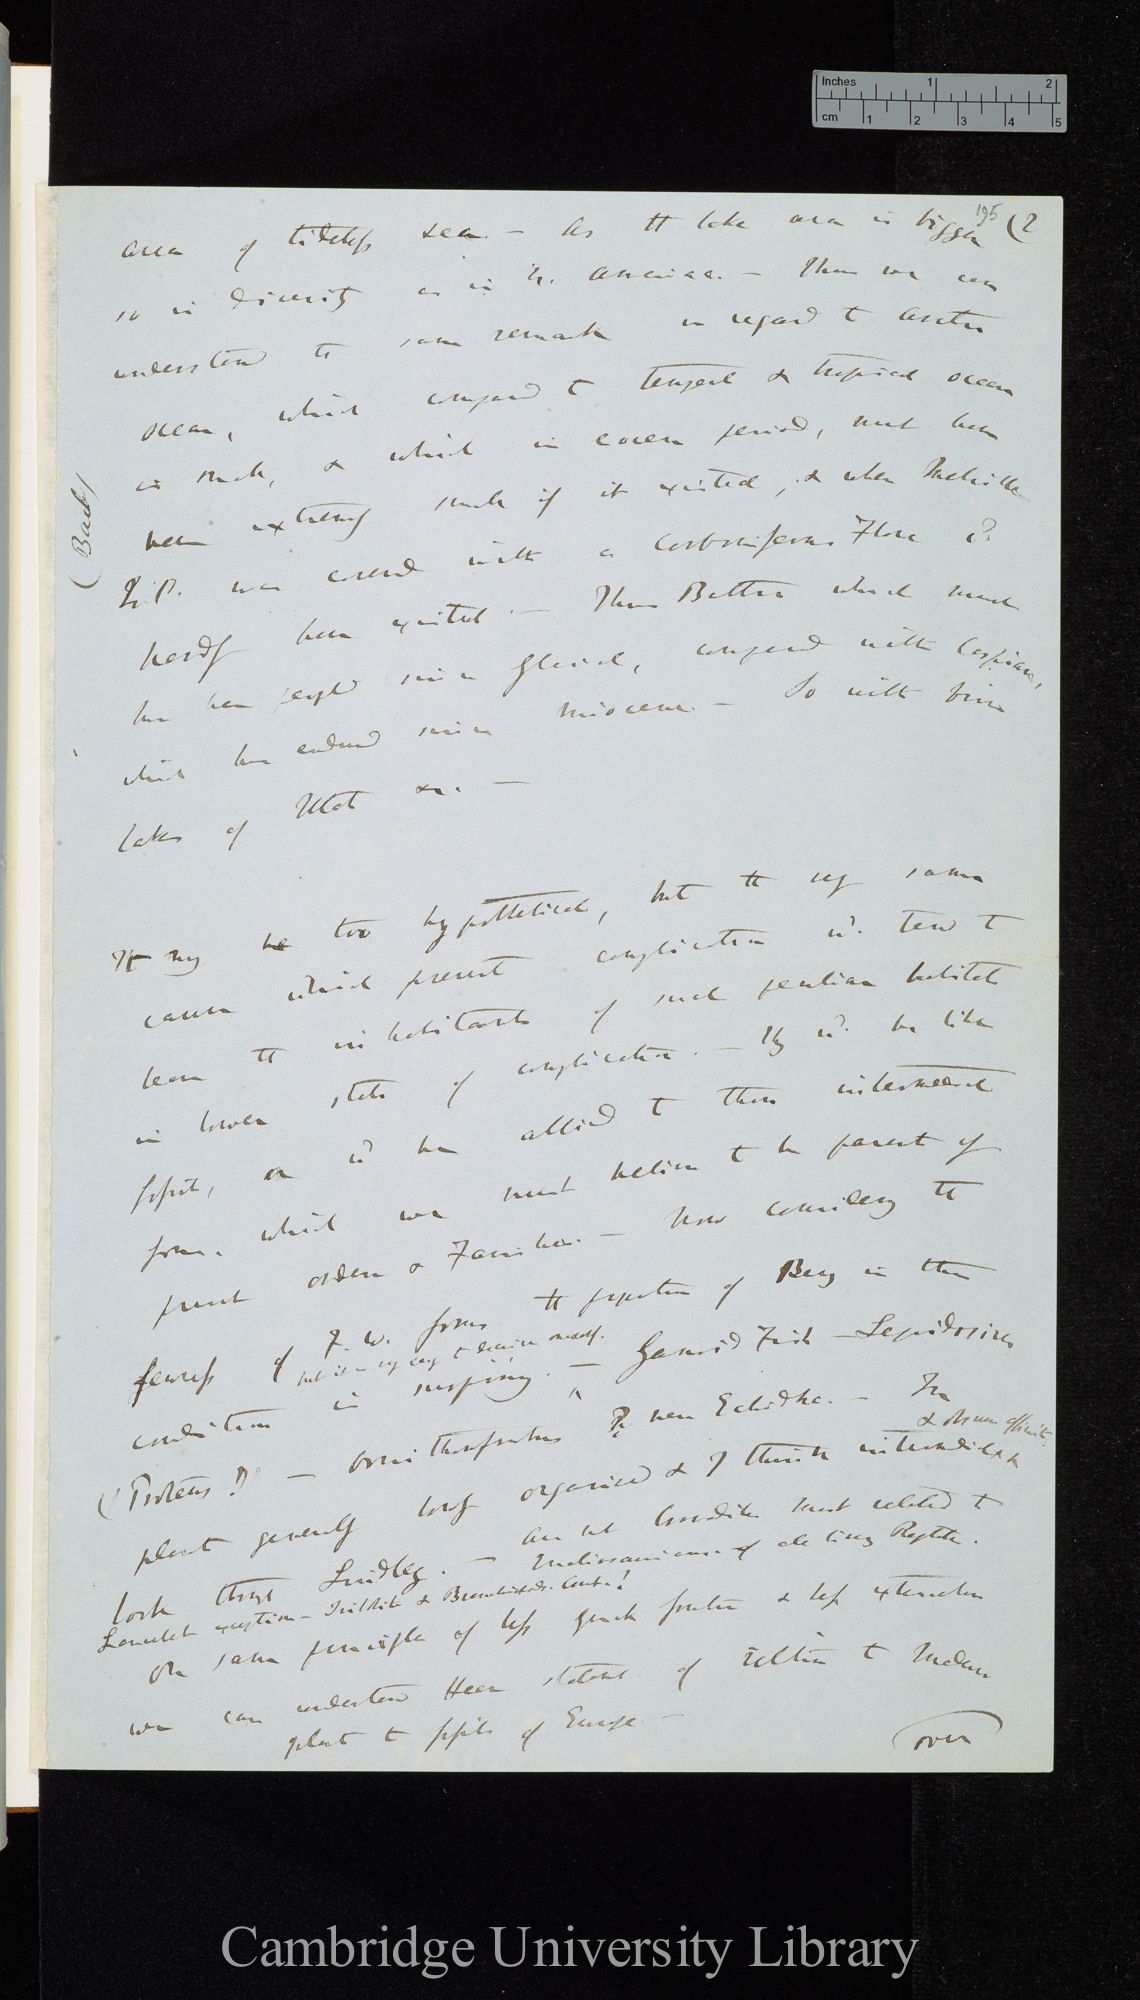 Inches 1 2
cm 1 2 3 4 5
195 (2
area of tideless sea. — As the lake area is bigger
so is diversity as in N. America. — Thus we can
understand the same remark in regard to Arctic
ocean, which compared to temperate & tropical ocean
is small, & which in eocene period, must have
been extremely small if it existed, & when Melville
Isd. was covered with a Carboniferous Flora cd.
hardly have existed. — Thus Baltic which must
have been peopled since glacial, compared with Caspian,
which has endured since Miocene. — So with brine
lakes of Utah &c. —
(Back)
It may be too hypothetical, but the very same
causes which prevent complication wd. tend to
leave the inhabitants of such peculiar habitats
in lower state of complication. — They wd. be like
fossils, or wd be allied to those intermediate
forms, which we must believe to be parent of
present orders & Families. — Now considering the
fewness of F. W. forms the proportion of Beings in this
but it is very easy to deceive oneself.
condition is surprising. — Ganoid Fish — Lepidosiren
(Proteus?) — Ornithorhynchus & near Echidna. — In
& obscure affinities
plant generally lowly organised & I think intermediate
look through Lindley. — Are not Crocodiles most related to
Endiosaurians of all living Reptiles.
Lancelet exception — Trilobite & Brachiopods. Contra!
On same principle of less great fossils & less extinction
we can understand Heer statement of relation to Madeira
plant to fossils of Europe —
(over
Cambridge University Library